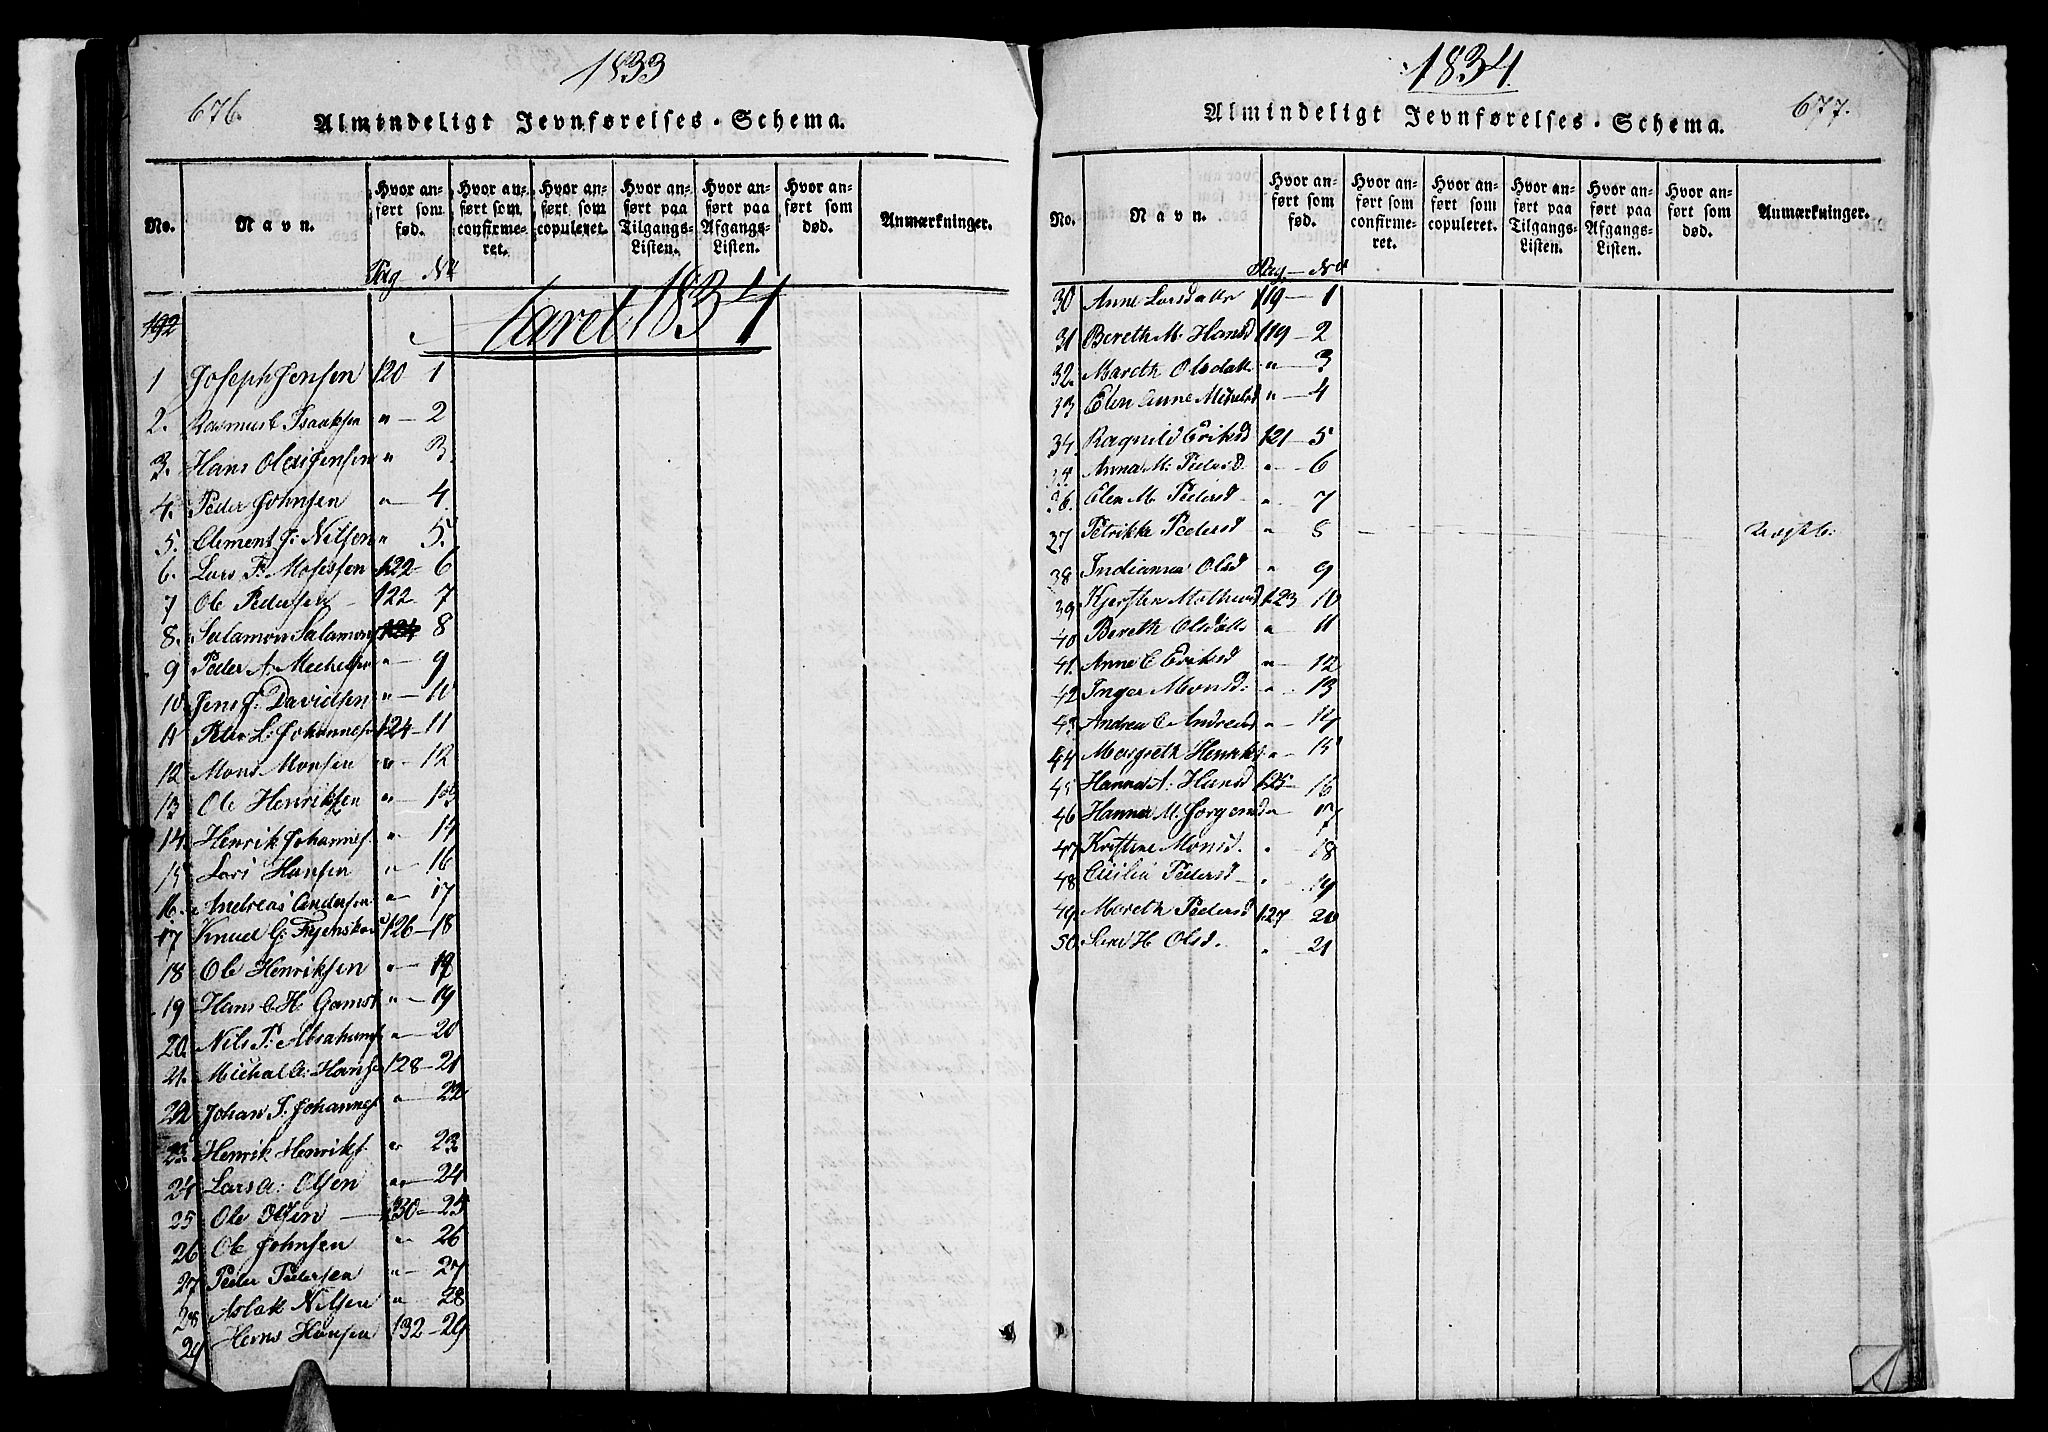 1833
676.
Almindeligt Jevnførelses-Schema.
No.
Navn.
Hvor an-
ført som
fød.
Hvor an-
ført som
confirme-
ret.
Hvor an-
ført som
copuleret.
Hvor an-
ført paa
Tilgangs-
Listen.
Hvor an-
ført paa
Afgangs-
Listen.
Hvor an-
ført som
død.
Anmærkninger.
Pag No
192
Aaret 1834
1 Joseph Jensen 120 1
2. Rasmus Isaaksen " — 2
3. Hans Jensen " 3.
4. Peder Johnsen " — 4.
5. Clement J: Nilsen " 5.
6. Lars F: Mosessen 122 - 6
7 Ole Pedersen — 122. 7
8. Salamon Salamons 8
9 Peder A. Michelsen " — 9
10. Jens J: Davidsen " — 10
11 Peder L: Johannes 124 — 11
12 Mons Monsen " — 12
13 Ole Henriksen " — 13
14. Henrik Johannes. "
15 Lars Hansen " — 16
16. Andreas Andersen " — 17
17 Knud G: 126 — 18
18 Ole Henriksen " — 19
19 Hans C H. Gamst " — 19
20. Nils P: Abrahams " — 20
21. Michal C: Hanse 128 — 21
22 Johan P. Johannes " — 22
23. Henrik Henriks. " 23
24 Lars A: Olsen " — 24
25 Ole Olsen — 130 — 25
26 Ole Johnsen " 26
27 Peder Pedersen " — 27
28 Aslak Nilsen " 28
29 Hans Hansen 132 — 29
1834.
677.
Almindeligt Jevnførelses-Schema.
No.
Navn.
Hvor an-
ført som
fød.
Hvor an-
ført som
confirme-
ret.
Hvor an-
ført som
copuleret.
Hvor an-
ført paa
Tilgangs-
Listen.
Hvor an-
ført paa
Afgangs-
Listen.
Hvor an-
ført som
død.
Anmærkninger.
Pag — No
30 Anne Larsdatter 119 — 1
31 Bereth M: Hansd 119 — 2
32. Mareth Olsdatt " — 3
33 Elen Anne Michelsd " — 4
34. Ragnild Eriksd 121 — 5
35. Anna M: Pedersd. " — 6
36. Elen M. Pedersd — " — 7
37 Petrikke Pedersd " 8
38 Indianna Olsd " 9
39 Kjersten Mathisd 123 10
40 Bereth Olsdatt " — 11
41. Anne C Eriksd " — 12
42 Inger Monsd: " — 13
43. Andrea C Andreasd " — 14
44 Margreth Henriks: " — 15
45 Hanna A: Hansd 125 — 16
46 Hanna M. Jørgensd " — 17
47 Kristine Monsd. " 18
48 Cicilia Pedersd — " — 19
49. Mareth Pedersd 127 — 20
50. H. Olsd. " — 21